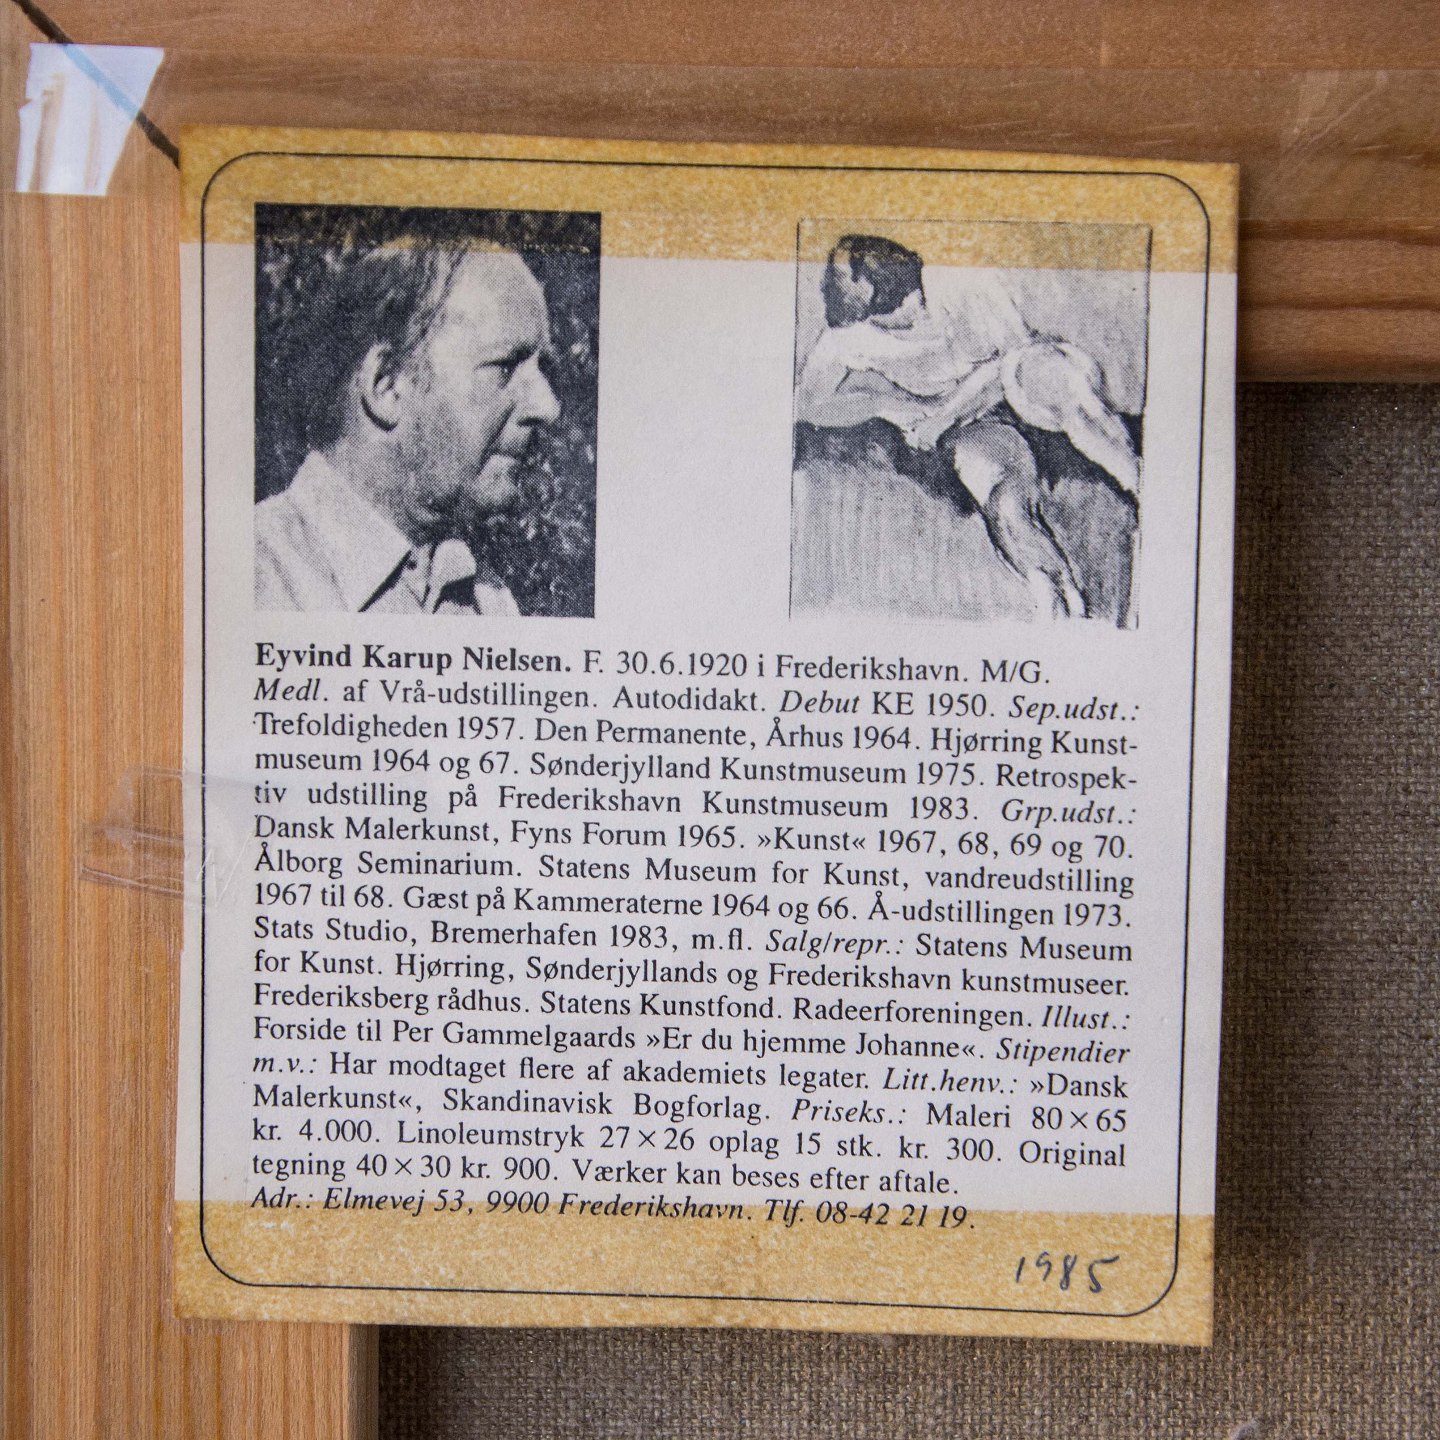 Eyvind Karup Nielsen. F. 30.6.1920 i Frederikshavn. M/G.
Medl. af Vrå-udstillingen. Autodidakt. Debut KE 1950. Sep.udst.:
Trefoldigheden 1957. Den Permanente, Århus 1964. Hjørring Kunst-
museum 1964 og 67. Sønderjylland Kunstmuseum 1975. Retrospek-
tiv udstilling på Frederikshavn Kunstmuseum 1983. Grp.udst.:
Dansk Malerkunst, Fyns Forum 1965. »Kunst« 1967, 68, 69 og 70.
Ålborg Seminarium. Statens Museum for Kunst, vandreudstilling
1967 til 68. Gæst på Kammeraterne 1964 og 66. Å-udstillingen 1973.
Stats Studio, Bremerhafen 1983, m.fl. Salg/repr.: Statens Museum
for Kunst. Hjørring, Sønderjyllands og Frederikshavn kunstmuseer.
Frederiksberg rådhus. Statens Kunstfond. Radeerforeningen. Illust.:
Forside til Per Gammelgaards »Er du hjemme Johanne«. Stipendier
m.v.: Har modtaget flere af akademiets legater. Litt.henv.: »Dansk
Malerkunst«, Skandinavisk Bogforlag. Priseks.: Maleri 80×65
kr. 4.000. Linoleumstryk 27×26 oplag 15 stk. kr. 300. Original
tegning 40×30 kr. 900. Værker kan beses efter aftale.
Adr.: Elmevej 53, 9900 Frederikshavn. Tlf. 08-42 21 19.
1985